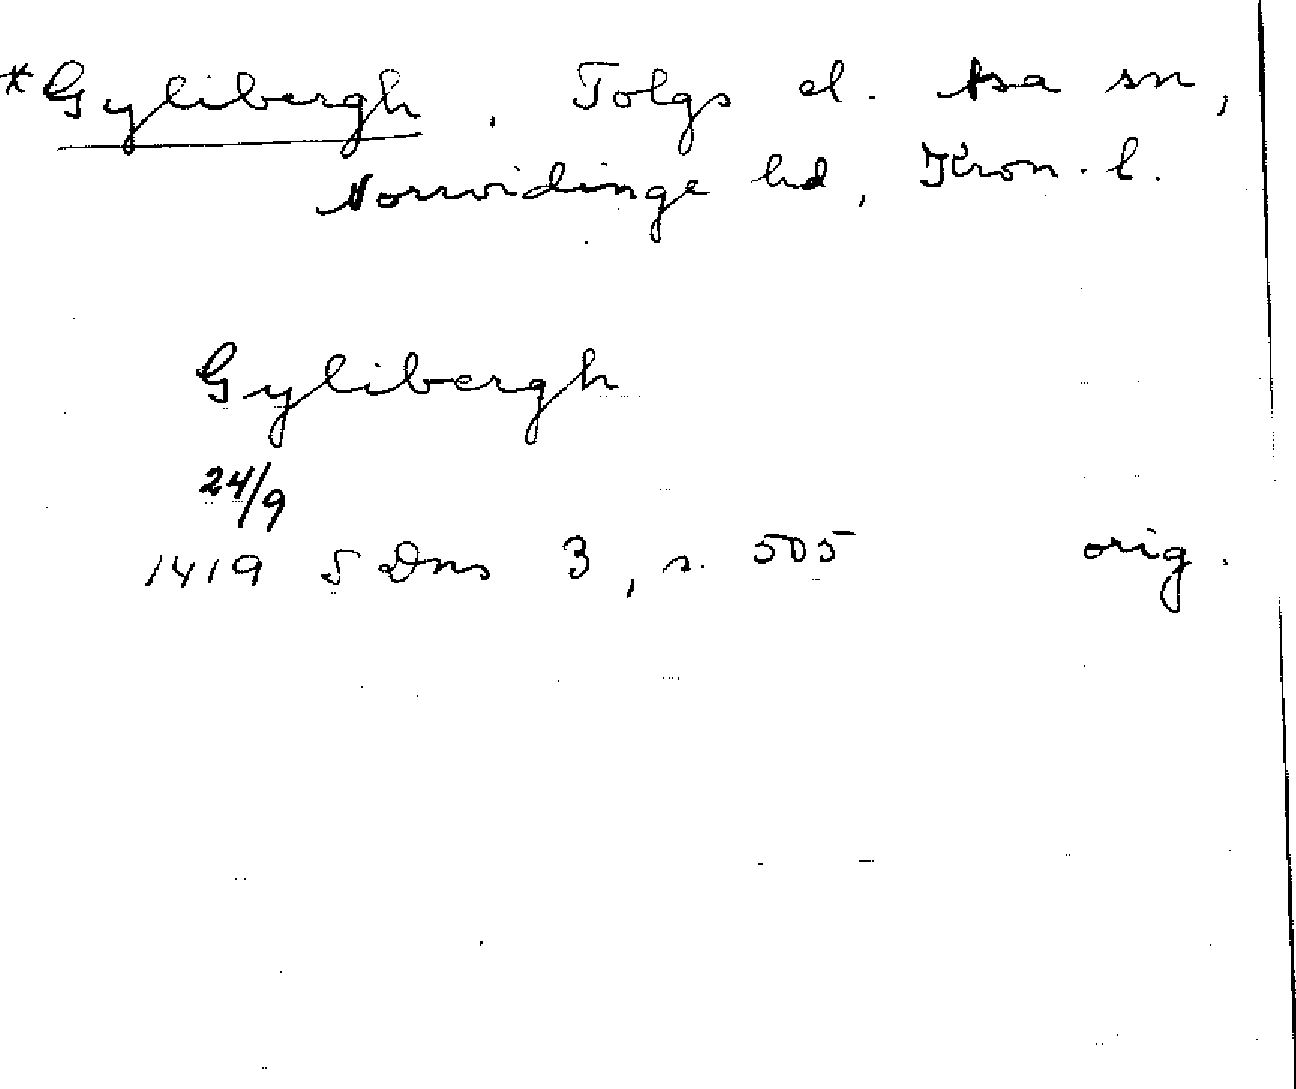 *Gylibergh, Tolgs el. Asa sn,
Norrvidinge hd, Kron. l.
Gylibergh
24/9
1419 SDns 3, s. 505 orig.